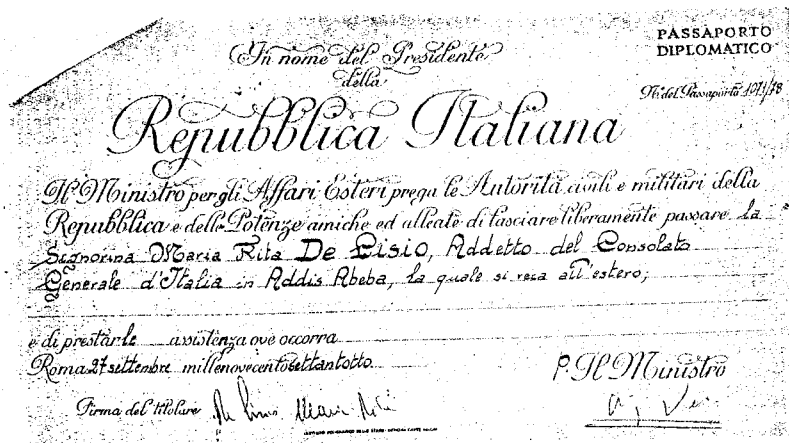 PASSAPORTO
DIPLOMATICO
In nome del Presidente
della
N° del Passaporto
Repubblica Italiana
Il Ministro per gli Affari Esteri prega le Autorità civili e militari della
Repubblica e delle Potenze amiche ed alleate di lasciare liberamente passare la
Signorina Maria Rita De Lisio, Addetto del Consolato
Generale d'Italia in Addis Abeba, la quale si reca all'estero;
e di prestarle assistenza ove occorra
Roma 27 settembre millenovecentosettantotto
P. Il Ministro
Firma del titolare